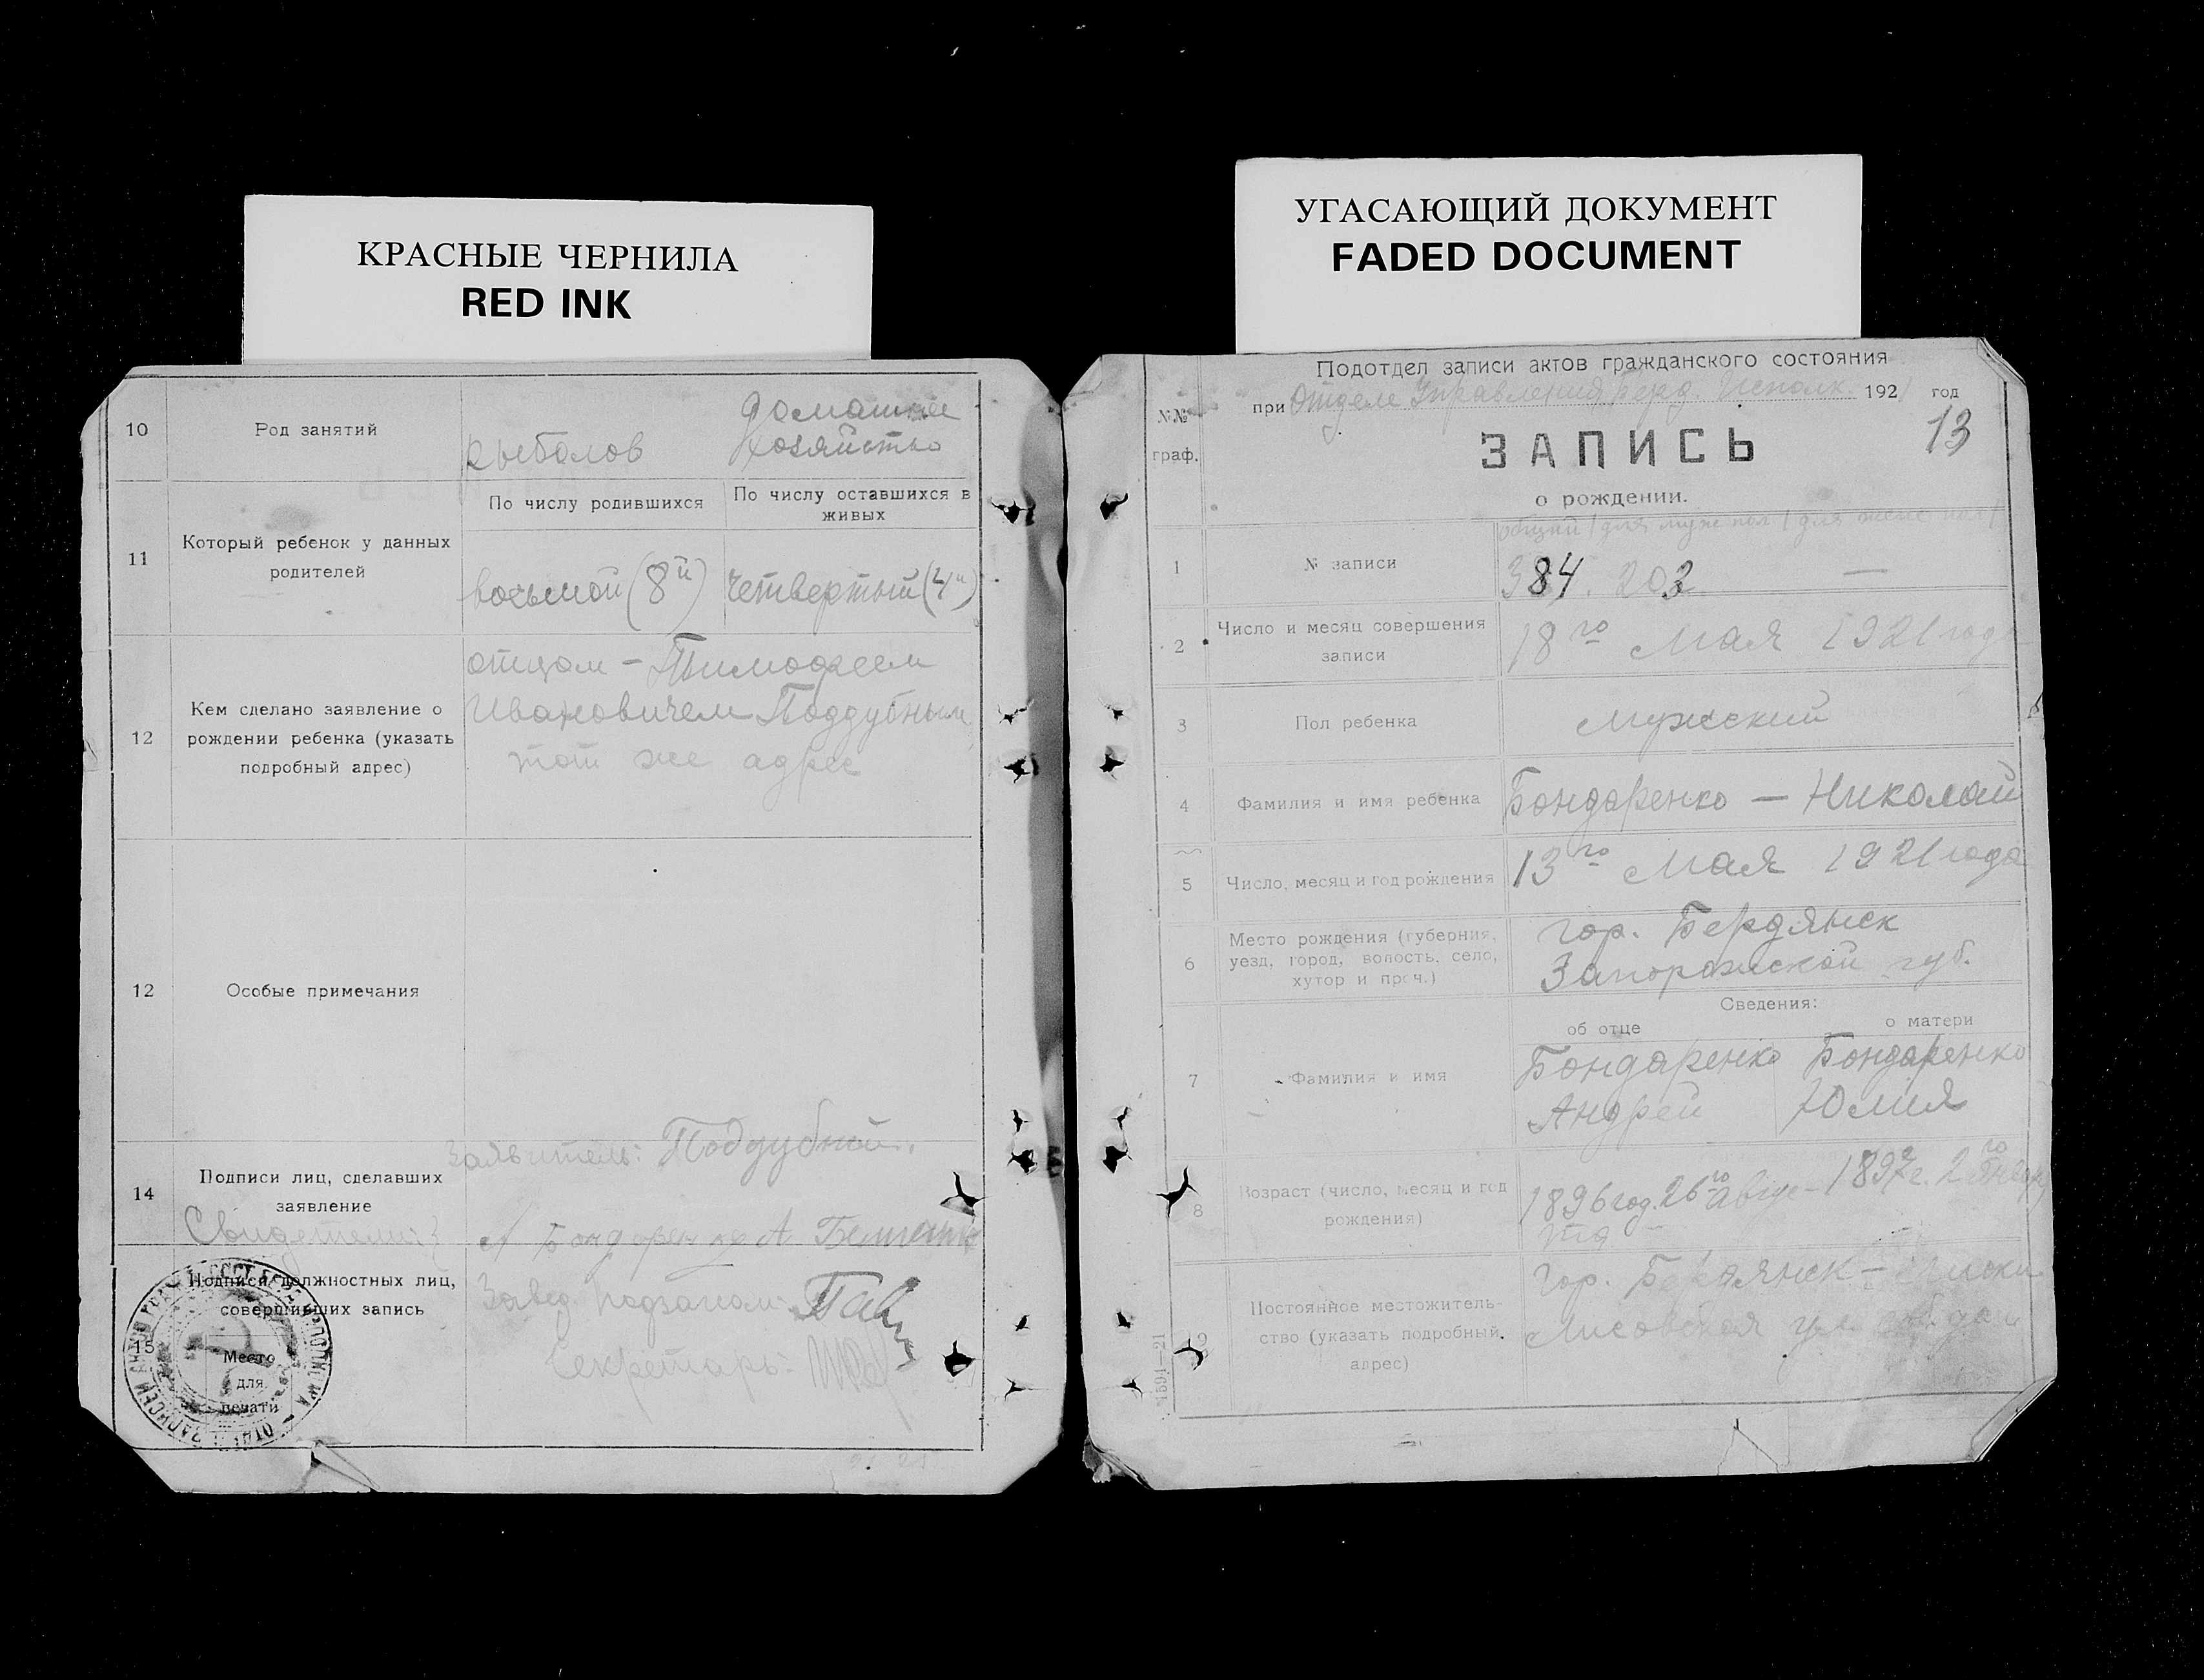 КРАСНЫЕ ЧЕРНИЛА
RED INK
10
Род занятий
рыболов
домашнее
хозяйство
11
Который ребенок у данных
родителей
По числу родившихся
По числу оставшихся в
живых
восьмой (8й)
четвертый (4й)
12
Кем сделано заявление о
рождении ребенка (указать
подробный адрес)
отцом - Тимофеем
Ивановичем Поддубным
тот же адрес
12
Особые примечания
14
Подписи лиц, сделавших
заявление
Свидетели:
Заявитель: Поддубный.
А Бондаренко А
15
Подписи должностных лиц,
совершивших запись
Место
для
печати
Завед.
Секретарь:
УГАСАЮЩИЙ ДОКУМЕНТ
FADED DOCUMENT
Подотдел записи актов гражданского состояния
при Отделе Управления Берд. Исполк. 1921 год
№№
граф.
13
ЗАПИСЬ
о рождении.
общий / для муж пол / для жене пол /
1
№ записи
384. 203 —
2
Число и месяц совершения
записи
18го Мая 1921 года
3
Пол ребенка
мужской
4
Фамилия и имя ребенка
Бондаренко — Николай
5
Число, месяц и год рождения
13го Мая 1921 года
6
Место рождения (губерния,
уезд, город, волость, село,
хутор и проч.)
гор. Бердянск
Запорожской губ.
Сведения:
об отце
о матери
7
Фамилия и имя
Бондаренко
Андрей
Бондаренко
Юлия
8
Возраст (число, месяц и год
рождения)
1896 год. 26го Авгус-
та
1897 г. 2го Января
9
Постоянное местожитель-
ство (указать подробный.
адрес)
гор. Бердянск -
Лисовская ул.
1591—21